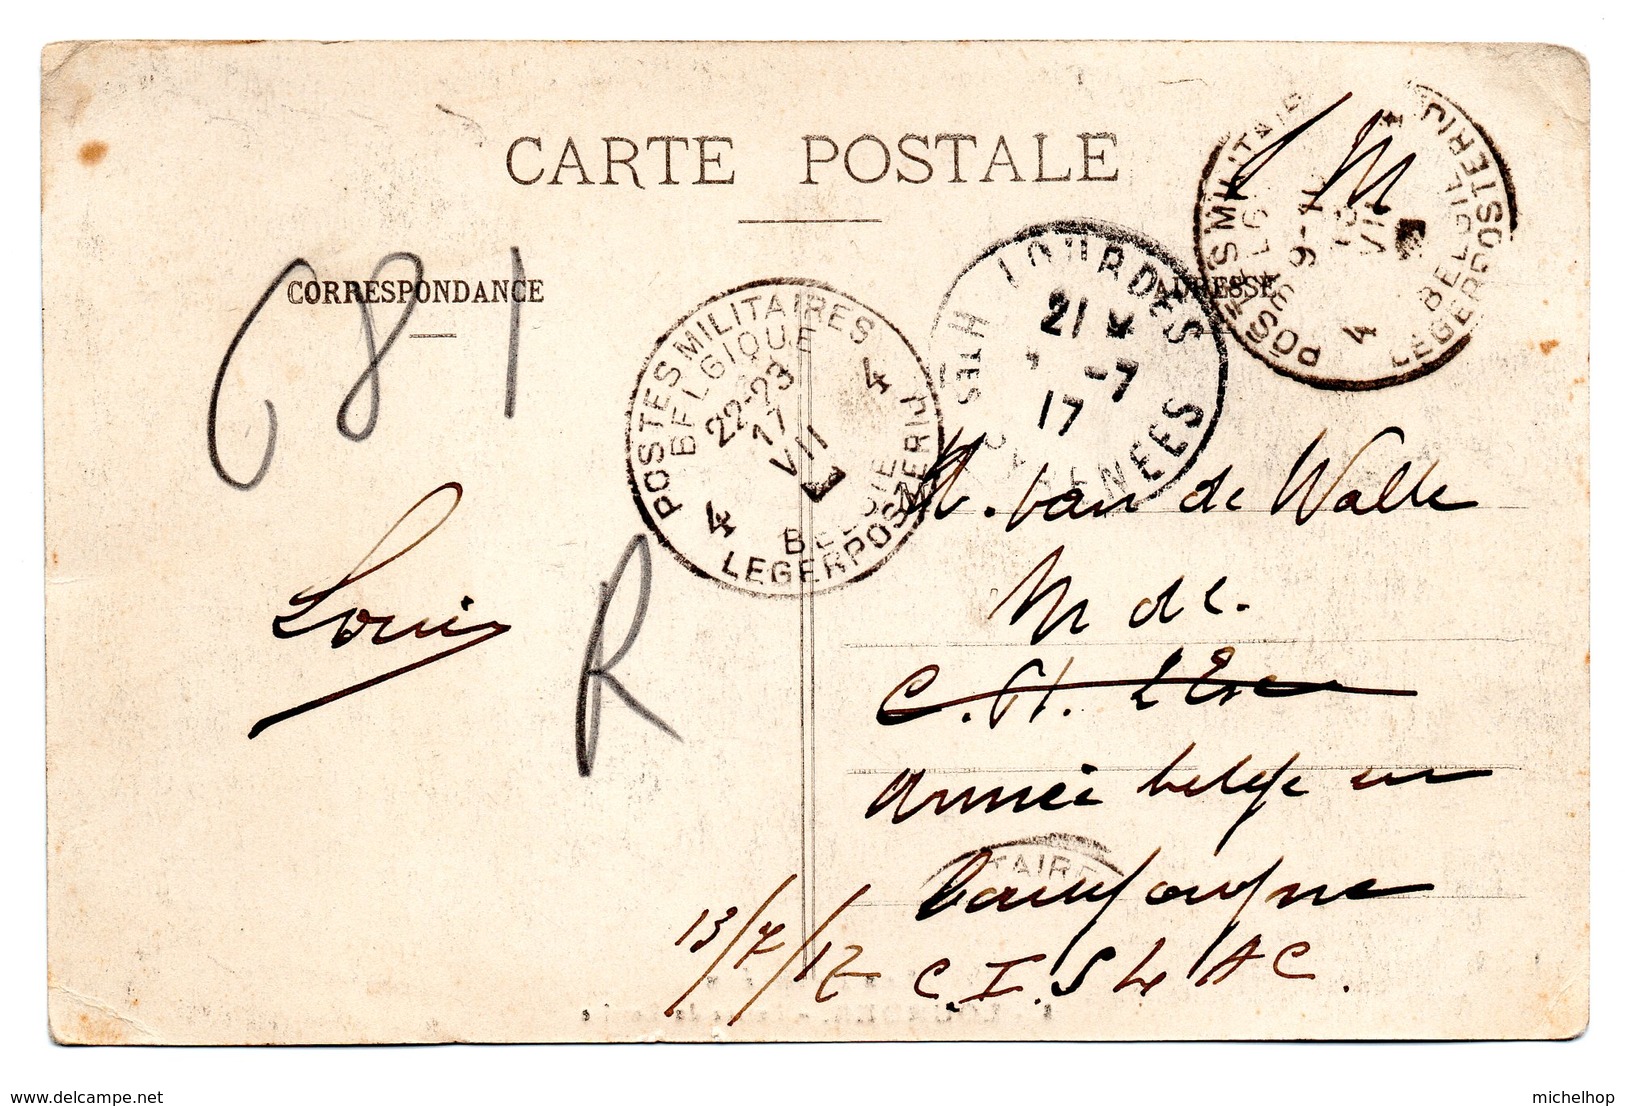 CARTE POSTALE
CORRESPONDANCE
ADRESSE
S M
681
POSTES MILITAIRES
BELGIQUE
22-23
17
VII
4 4
BELGIE
LEGERPOSTERIJ
LOURDES
21
-7
17
HTES PYRENEES
POSTES MILITAIRES
BELGIQUE
9-10
VII
4
BELGIE
LEGERPOSTERIJ
Louis
R
M. van de Walle
M de L.
C. H.
Armée belge en
Campagne
TAIRE
13/7/17
C.I.S L A C.
delcampe.net
michelhop